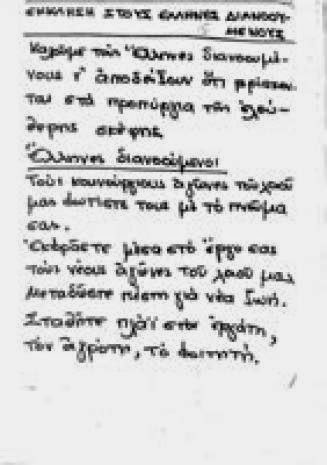 ΕΚΚΛΗΣΗ ΣΤΟΥΣ ΕΛΛΗΝΕΣ ΔΙΑΝΟΟΥ-
ΜΕΝΟΥΣ
Καλοῦμε τοὺς Ἕλληνες διανοουμέ-
νους ν' ἀποδείξουν ὅτι βρίσκον-
ται στὰ προπύργια τῆς ἐλεύ-
θερης σκέψης
Ἕλληνες διανοούμενοι
Τοὺς καινούργιους ἀγῶνες τοῦ λαοῦ
μας φωτίστε τους μὲ τὸ πνεῦμα
σας.
Ἐκφράστε μέσα στὸ ἔργο σας
τοὺς νέους ἀγῶνες τοῦ λαοῦ μας
Μεταδῶστε πίστη γιὰ νέα ζωή.
Σταθῆτε πλάϊ στὸν ἐργάτη,
τὸν ἀγρότη, τὸ φοιτητή.